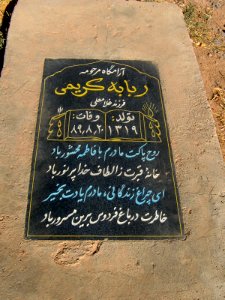 آرامگاه مرحومه
ربابه کریمی
فرزند غلامعلی
تولد: وفات:
۱۳۱۹ ۸۹,۸,۲۰
روح پاکت مادرم با فاطمه محشور باد
خانهٔ قبرت ز الطاف خدا پر نور باد
ای چراغ زندگانی، مادرم یادت بخیر
خاطرت در باغ فردوس برین مسرور باد